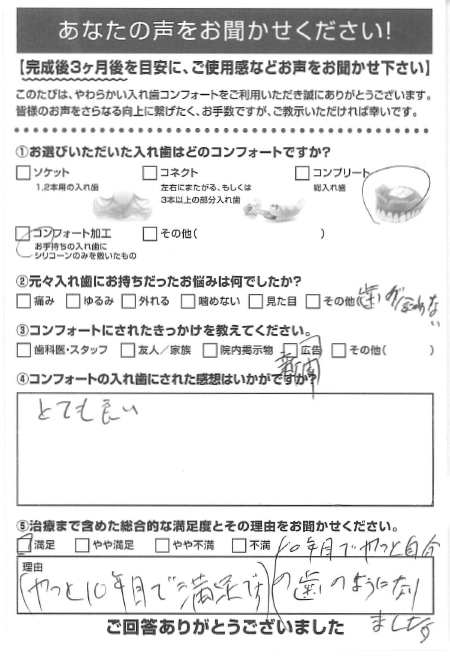 あなたの声をお聞かせください!
【完成後3ヶ月後を目安に、ご使用感などお声をお聞かせ下さい】
このたびは、やわらかい入れ歯コンフォートをご利用いただき誠にありがとうございます。
皆様のお声をさらなる向上に繋げたく、お手数ですが、ご教示いただければ幸いです。
①お選びいただいた入れ歯はどのコンフォートですか?
□ソケット □コネクト □コンプリート
1,2本用の入れ歯 左右にまたがる、もしくは 総入れ歯
3本以上の部分入れ歯
□コンフォート加工 □その他( )
お手持ちの入れ歯に
シリコーンのみを敷いたもの
②元々入れ歯にお持ちだったお悩みは何でしたか?
□痛み □ゆるみ □外れる □噛めない □見た目 □その他 歯が
ない
③コンフォートにされたきっかけを教えてください。
□歯科医・スタッフ □友人/家族 □院内掲示物 □広告 □その他( )
新聞
④コンフォートの入れ歯にされた感想はいかがですか?
とても良い
⑤治療まで含めた総合的な満足度とその理由をお聞かせください。
□満足 □やや満足 □やや不満 □不満
理由
(やっと10年目で満足です)
(10年目でやっと自分
の歯のように
ました
ご回答ありがとうございました